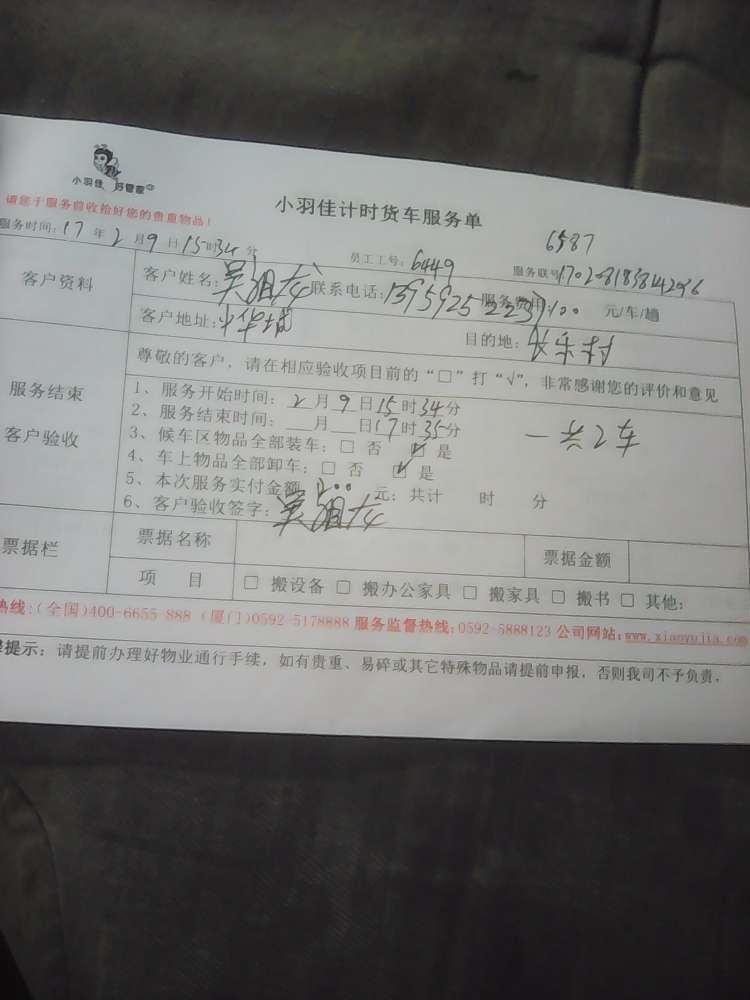 小羽佳 好管家
小羽佳计时货车服务单
请您于服务前收拾好您的贵重物品!
6587
服务时间:17年2月9日15时34分 员工工号:6449 服务联号
客户资料 客户姓名:吴 联系电话:13959252237 服务费用:100 元/车/趟
客户地址:中华城 目的地:长乐村
尊敬的客户,请在相应验收项目前的“□”打“√”,非常感谢您的评价和意见
服务结束
客户验收
1、服务开始时间:2月9日15时34分
2、服务结束时间:__月__日17时35分
3、候车区物品全部装车:□ 否 ☑ 是
一共2车
4、车上物品全部卸车:□ 否 ☑ 是
5、本次服务实付金额 元;共计 时 分
6、客户验收签字:吴
票据栏 票据名称 票据金额
项 目 □ 搬设备 □ 搬办公家具 □ 搬家具 □ 搬书 □ 其他:
热线:(全国)400-6655-888 (厦门)0592-5178888 服务监督热线:0592-5888123 公司网站:www.xiaoyujia.com
提示:请提前办理好物业通行手续,如有贵重、易碎或其它特殊物品请提前申报,否则我司不予负责,